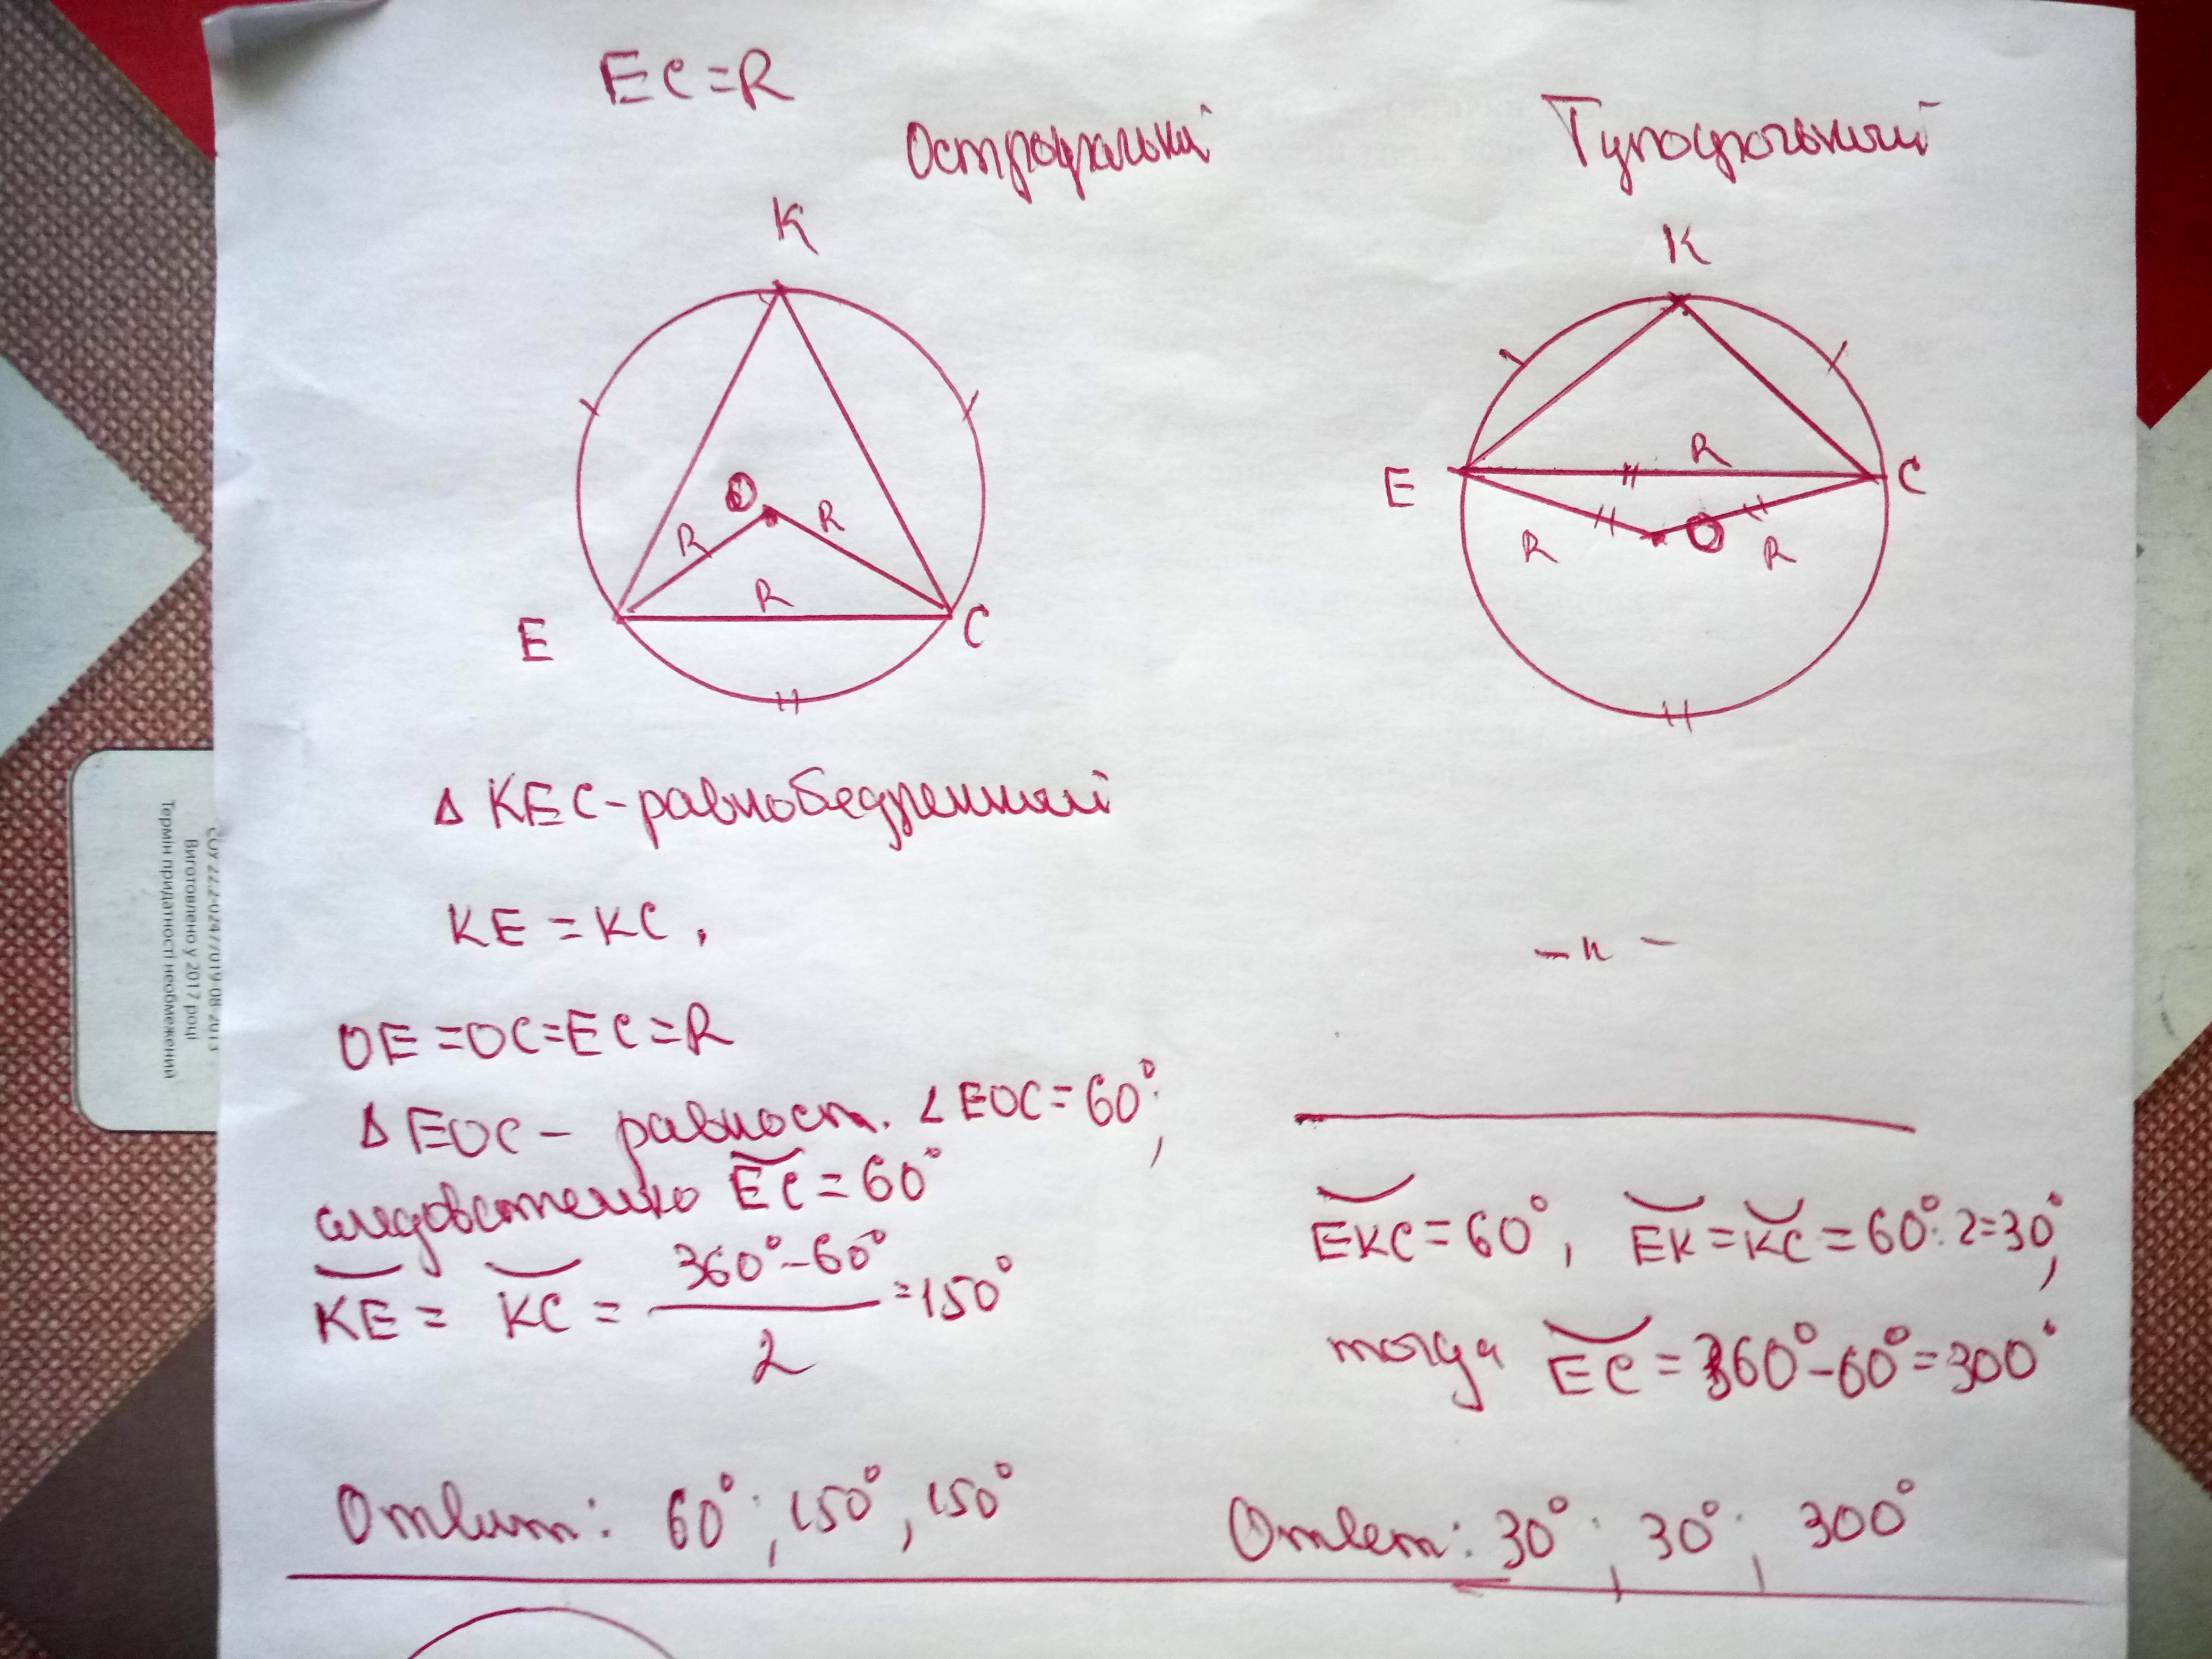 EC=R
Остроугольный
Тупоугольный
K
O
R
R
R
E
C
K
R
E
C
O
R
R
Δ KEC-равнобедренный
KE = KC,
- " -
OE=OC=EC=R
Δ EOC- равност. ∠EOC=60°;
следовательно ◡EC=60°
◡KE = ◡KC = (360°-60°)/2 =150°
◡EKC=60°, ◡EK=◡KC=60°:2=30°,
тогда ◡EC=360°-60°=300°
Ответ: 60°; 150°, 150°
Ответ: 30°; 30°; 300°
СОУ 22.2-02477019-08-2013
Виготовлено у 2017 році
Термін придатності необмежений